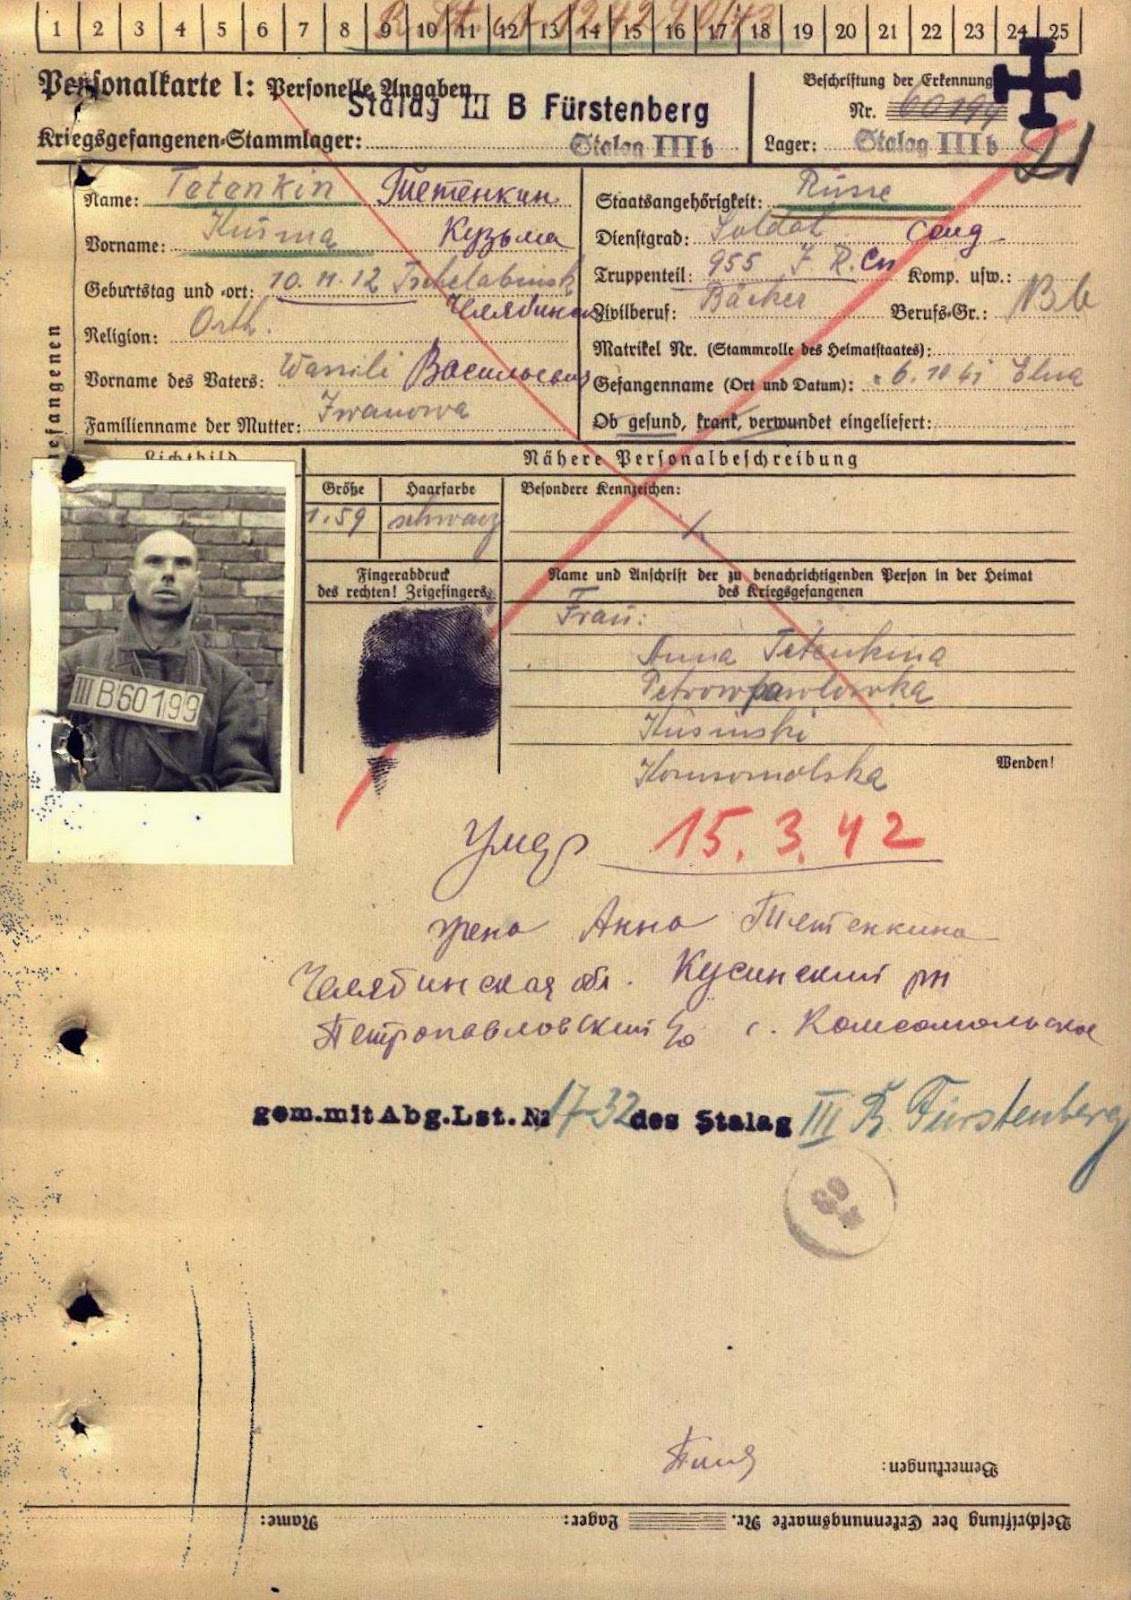 1 2 3 4 5 6 7 8 9 10 11 12 13 14 15 16 17 18 19 20 21 22 23 24 25
Personalkarte I: Personelle Angaben
Stalag III B Fürstenberg
Kriegsgefangenen-Stammlager: Stalag III b
Beschriftung der Erkennung
Nr.
Lager: Stalag III b
Name: Tetenkin Тетенкин
Vorname: Kusma Кузьма
Geburtstag und -ort: 10.11.12 Tschelabinsk
Челябинск
Religion: Orth.
Vorname des Vaters: Wassili Васильевич
Familienname der Mutter: Iwanowa
Staatsangehörigkeit: Russe
Dienstgrad: Soldat Солд
Truppenteil: 955 J.R. Сп Komp. usw.:
Zivilberuf: Bäcker Berufs-Gr.:
Matrikel Nr. (Stammrolle des Heimatstaates):
Gefangenname (Ort und Datum): 6.10.41 Elna
Ob gesund, krank, verwundet eingeliefert:
efangenen
Lichtbild
Nähere Personalbeschreibung
Größe Haarfarbe Besondere Kennzeichen:
1.59 schwarz
Fingerabdruck
des rechten! Zeigefingers
Name und Anschrift der zu benachrichtigenden Person in der Heimat
des Kriegsgefangenen
Frau:
Anna Tetenkina
Petrowpawlowka
Kusinski
Komsomolska
Wenden!
III B 60199
Умер 15.3.42
жена Анна Тетенкина
Челябинская обл. Кусинский рн
Петропавловский с. Комсомольское
gem.mit Abg.Lst. № 1732 des Stalag III B Fürstenberg
Bemerkungen:
Beschriftung der Erkennungsmarke Nr. Lager: Name: